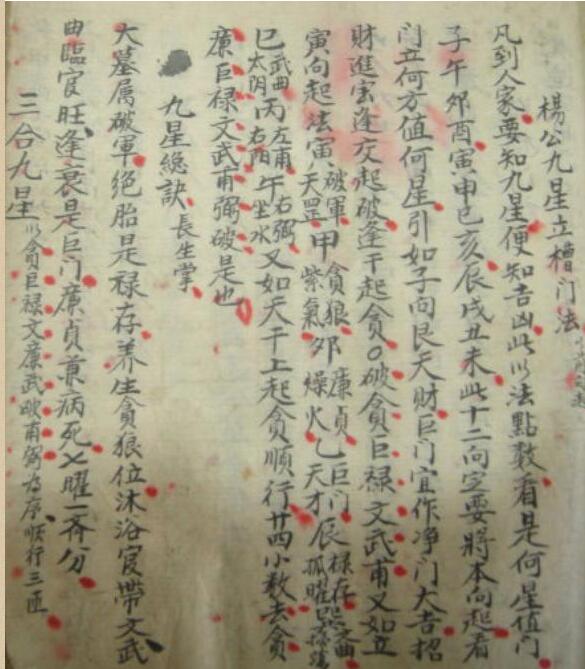 楊公九星立槽門法
凡到人家要知九星便知吉凶此以法點数看是何星值門
子午夘酉寅申巳亥辰戌丑未此十二向定要將本向起看
门立何方值何星引如子向艮天財巨门宜作净门大吉招
財進宝逢交起破逢干起貪〇破貪巨禄文武甫又如立
寅向起法寅破軍天罡甲貪狼紫氣夘廉貞燥火乙巨门天才辰禄存孤曜巽文曲掃蕩
巳武曲太阴丙左甫太阳午右弼坐水又如天干上起貪順行廿四小数去貪
廉巨禄文武甫弼破是也
九星總訣長生掌
大墓属破軍絕胎是禄存养生貪狼位沐浴官帶文武
曲臨官旺逢衰是巨门廉貞兼病死七曜一斉分
三合九星以貪巨禄文廉武破甫弼为序順行三匝